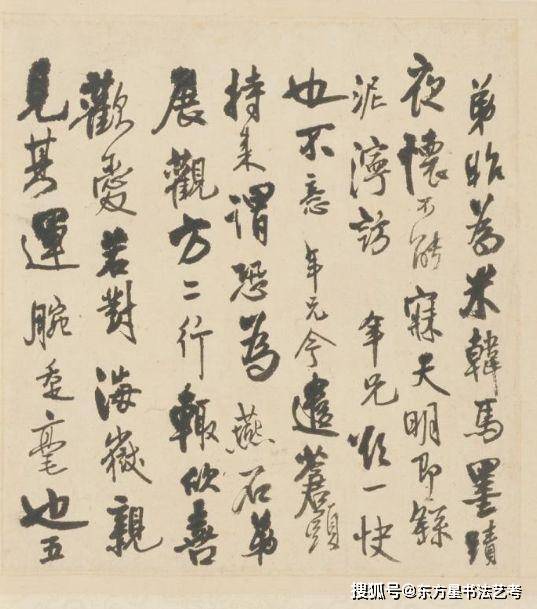 弟昨為米韓馬墨蹟
夜懷不能寐天明即
泥濘訪 年兄 一快
也不意 年兄今遣蒼頭
持来謂恐為燕石弟
展觀方二行輒欣喜
歡愛若對海嶽親
見其運腕垂毫也五
搜狐号@东方星书法艺考